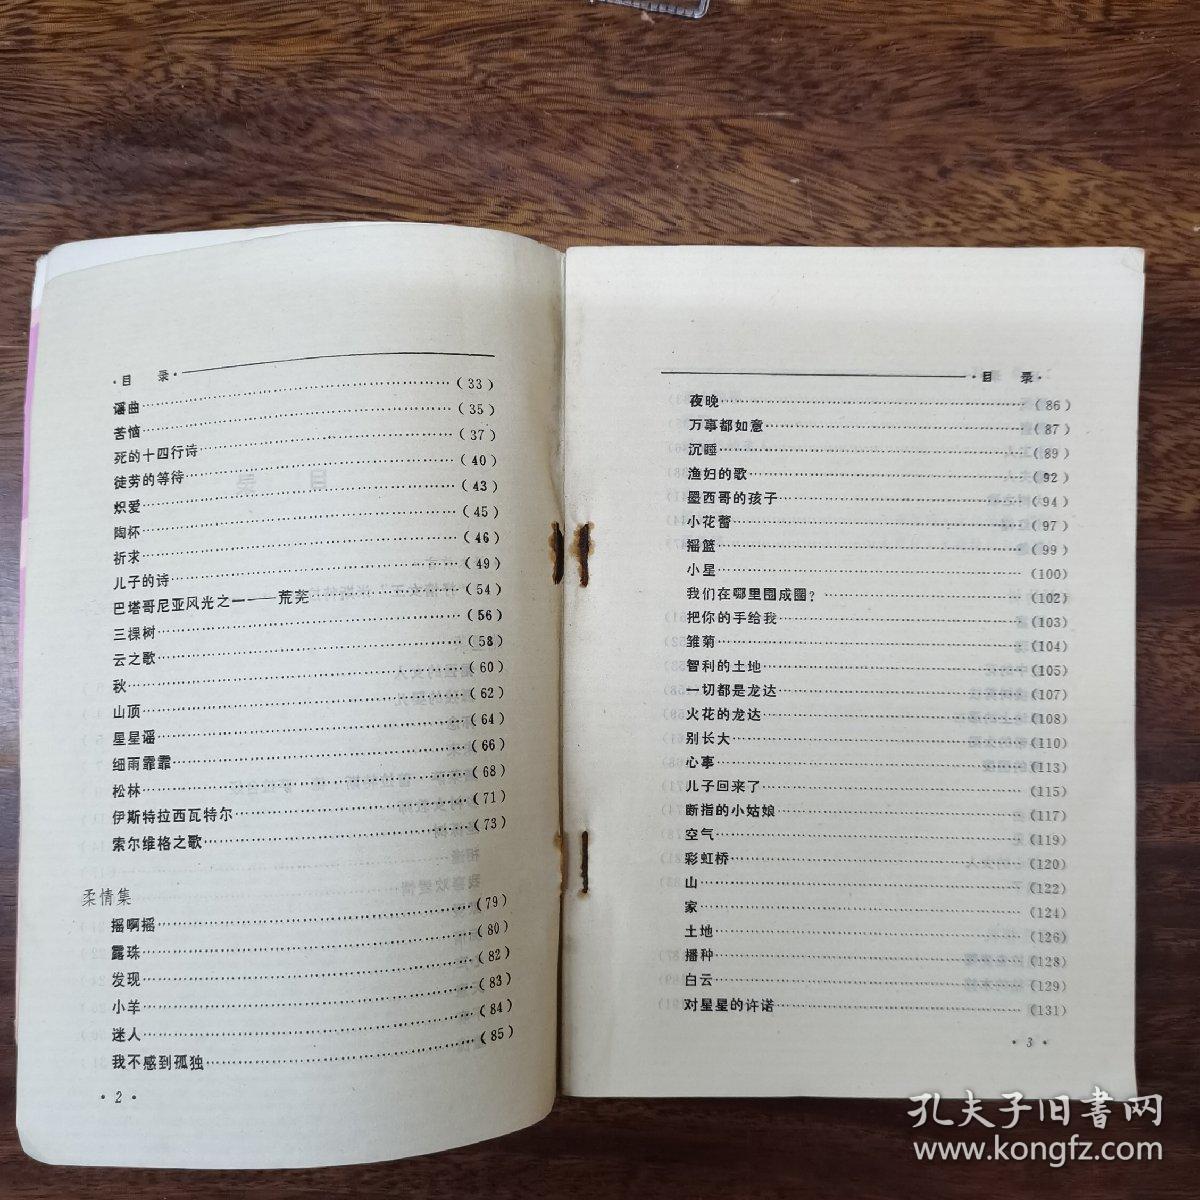 ·目 录·
谣曲……(33)
苦恼……(35)
死的十四行诗……(37)
徒劳的等待……(40)
炽爱……(43)
陶杯……(45)
祈求……(46)
儿子的诗……(49)
巴塔哥尼亚风光之一——荒芜……(54)
三棵树……(56)
云之歌……(58)
秋……(60)
山顶……(62)
星星谣……(64)
细雨霏霏……(66)
松林……(68)
伊斯特拉西瓦特尔……(71)
索尔维格之歌……(73)
柔情集
摇啊摇……(79)
露珠……(80)
发现……(82)
小羊……(83)
迷人……(84)
我不感到孤独……(85)
·2·
·目 录·
夜晚……(86)
万事都如意……(87)
沉睡……(89)
渔妇的歌……(92)
墨西哥的孩子……(94)
小花蕾……(97)
摇篮……(99)
小星……(100)
我们在哪里围成圈?……(102)
把你的手给我……(103)
雏菊……(104)
智利的土地……(105)
一切都是龙达……(107)
火花的龙达……(108)
别长大……(110)
心事……(113)
儿子回来了……(115)
断指的小姑娘……(117)
空气……(119)
彩虹桥……(120)
山……(122)
家……(124)
土地……(126)
播种……(128)
白云……(129)
对星星的许诺……(131)
·3·
孔夫子旧書网
www.kongfz.com